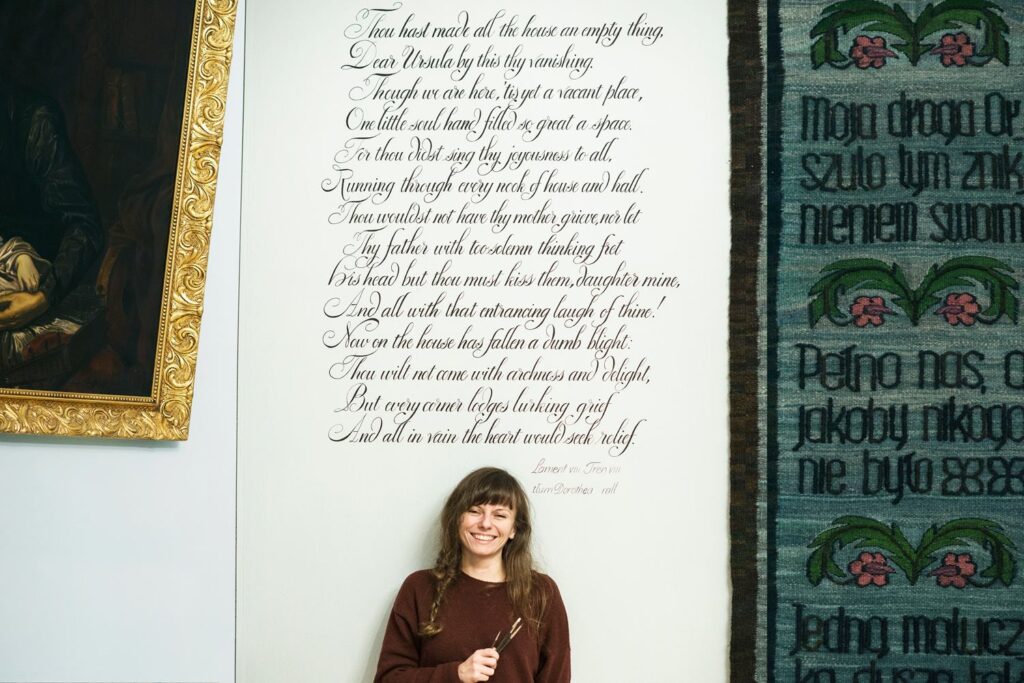 Thou hast made all the house an empty thing,
Dear Ursula by this thy vanishing.
Though we are here, 'tis yet a vacant place,
One little soul hand filled so great a space.
For thou didst sing thy joyousness to all,
Running through every nook of house and hall.
Thou wouldst not have thy mother grieve, nor let
Thy father with too solemn thinking fret
His head but thou must kiss them, daughter mine,
And all with that entrancing laugh of thine!
Now on the house has fallen a dumb blight:
Thou wilt not come with archness and delight,
But every corner lodges lurking grief
And all in vain the heart would seek relief.
Lament VIII Tren VIII
tłum Dorothea
Moja droga Or
szulo tym znik
nieniem swoim
Pełno nas, a
jakoby nikogo
nie było
Jedną malucz
ką duszą tak